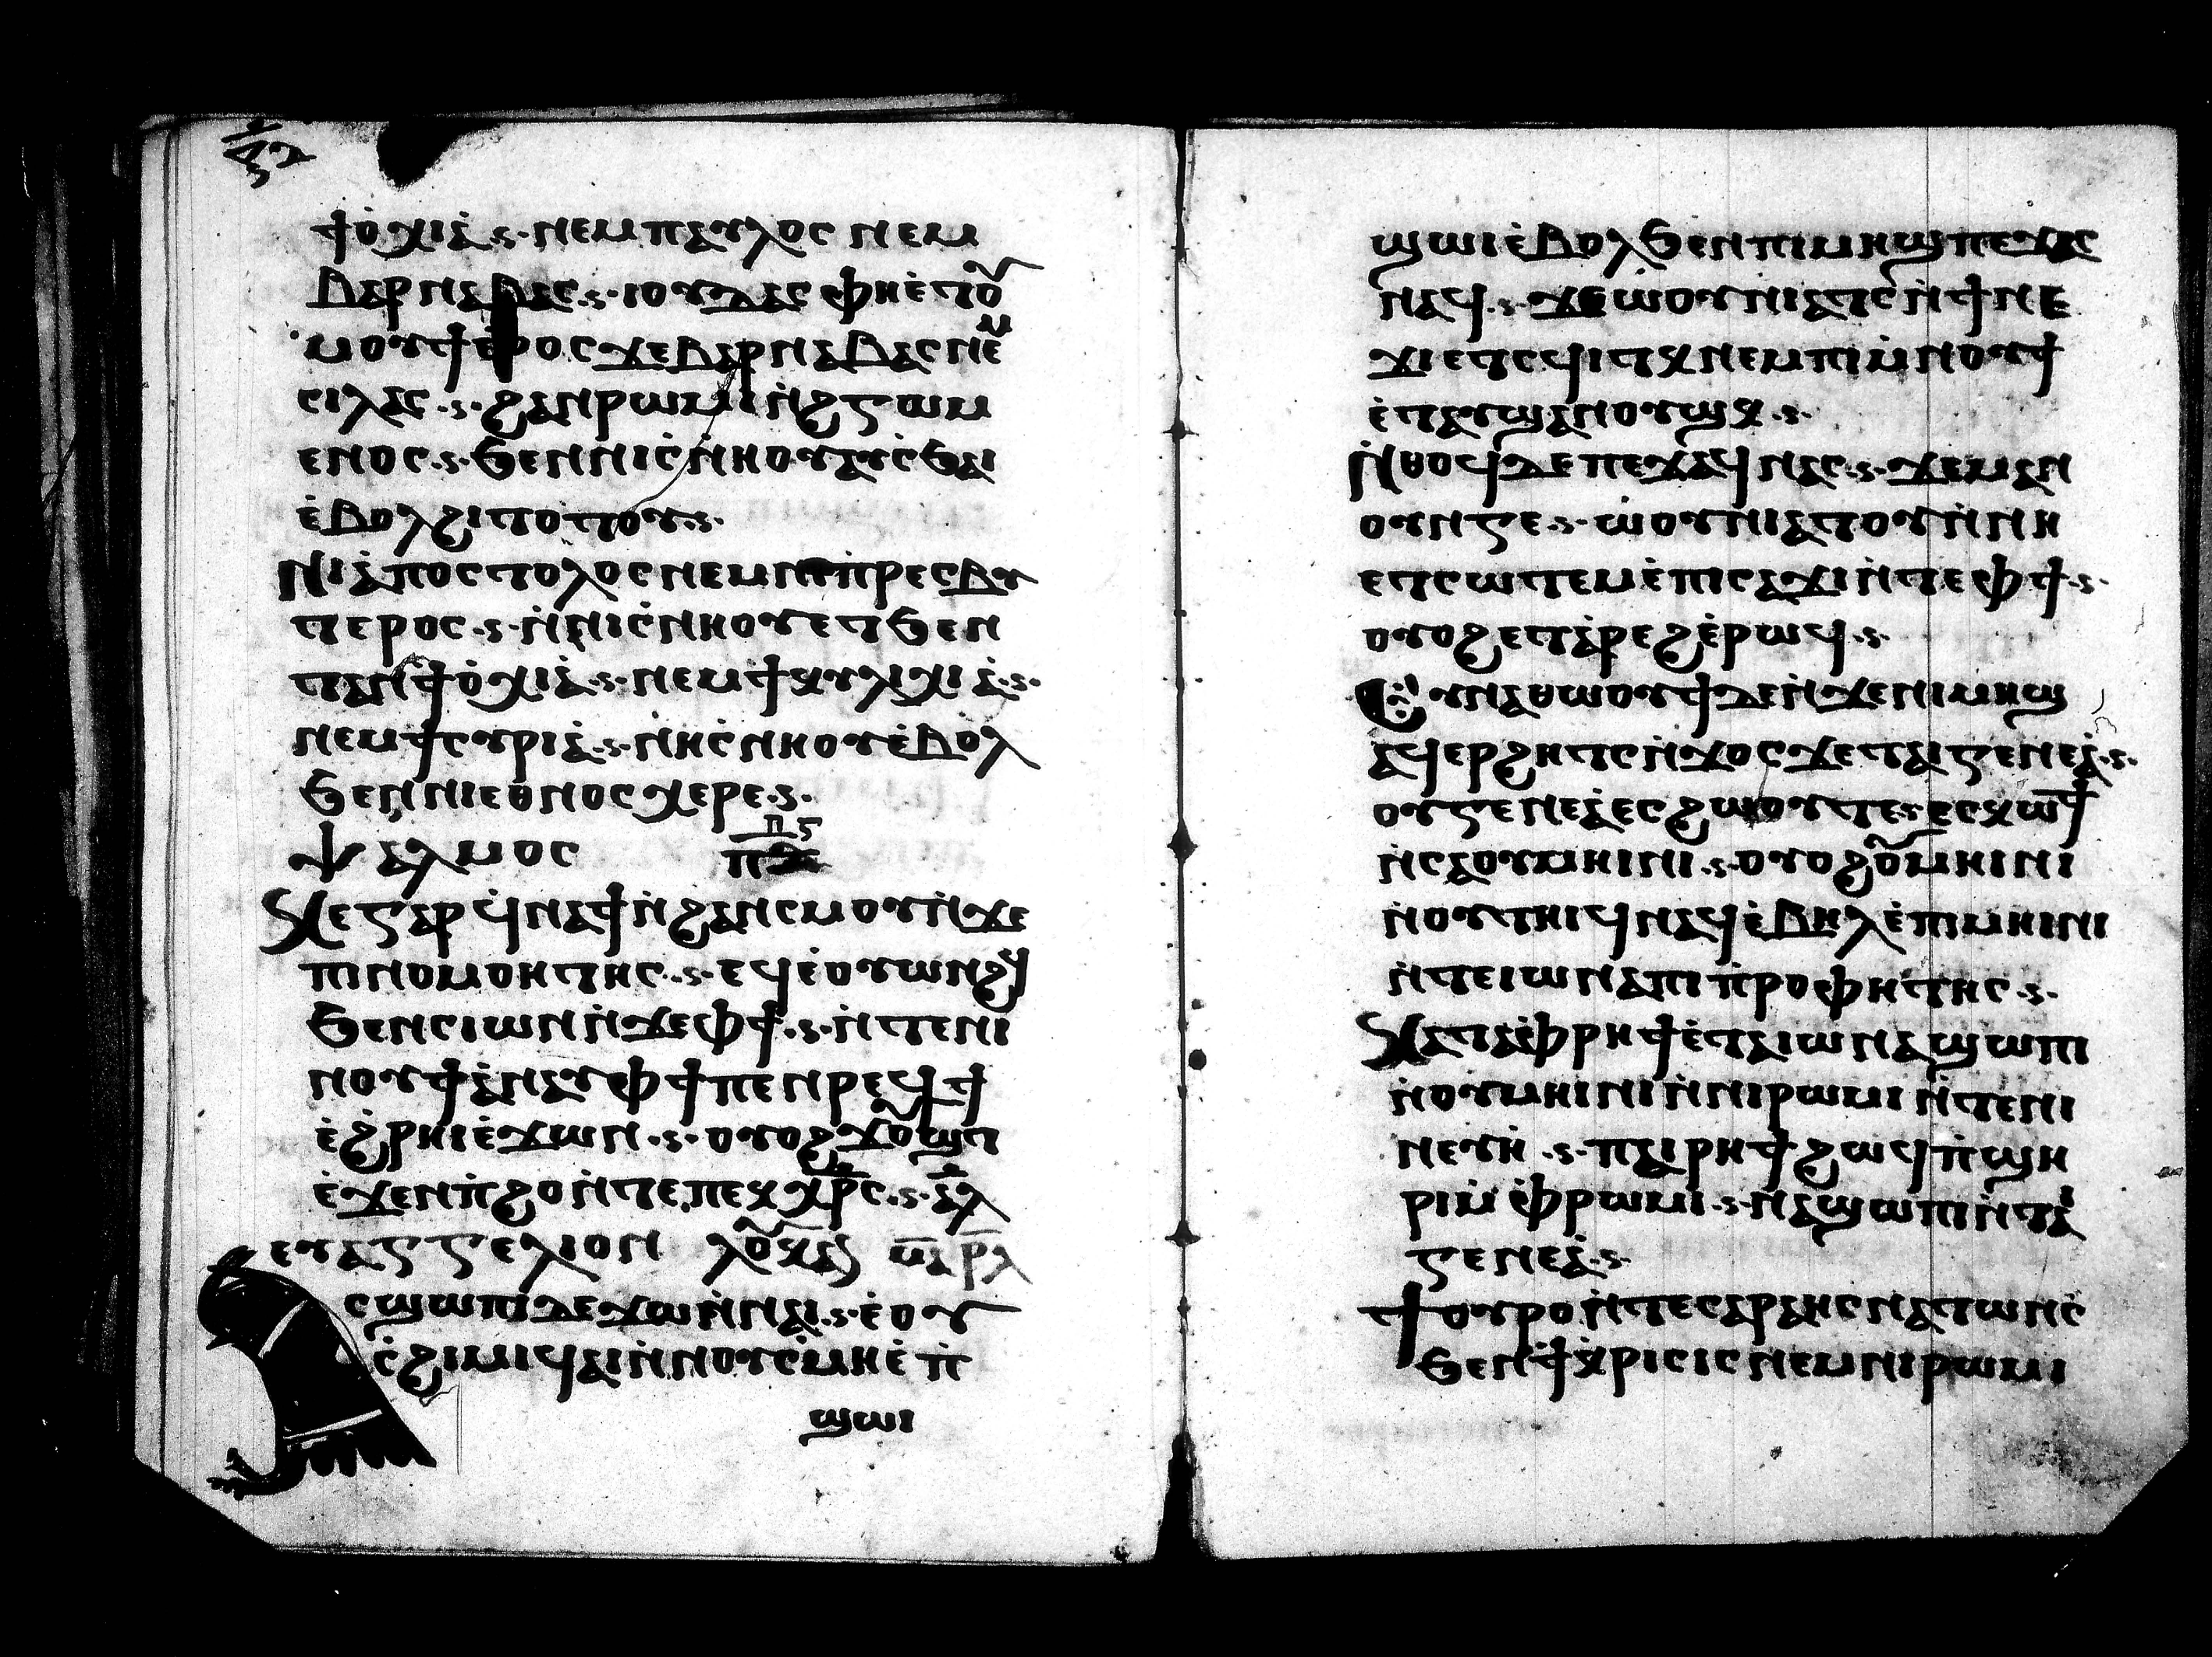 ϯⲟ̀ⲭⲓⲁ̀·ⲋ· ⲛⲉⲙ ⲡⲁⲩⲗⲟⲥ ⲛⲉⲙ
ⲃⲁⲣⲛⲁⲃⲁⲥ·ⲋ· ⲓⲟⲩⲇⲁⲥ ⲫⲏⲉ̀ⲧⲟⲩ
ⲙⲟⲩϯ ⲉⲣⲟⲥ ϫⲉ ⲃⲁⲣⲛⲁⲃⲁⲥ ⲛⲉⲙ
ⲥⲓⲗⲁⲥ·ⲋ· ϩⲁⲛⲣⲱⲙⲓ ⲛ̀ϩⲩⲅⲟⲩⲙ
ⲉⲛⲟⲥ·ⲋ· ϧⲉⲛ ⲛⲓⲥ̀ⲛⲏⲟⲩ ⲁⲩⲥ̀ϧⲁⲓ
ⲉ̀ⲃⲟⲗϩⲓⲧⲟⲧⲟⲩ·ⲋ·
Ⲛⲓⲁ̀ⲡⲟⲥⲧⲟⲗⲟⲥ ⲛⲉⲙ ⲛⲓⲡ̀ⲣⲉⲥⲃⲩ
ⲧⲉⲣⲟⲥ·ⲋ· ⲛ̀ⲛⲓⲥ̀ⲛⲏⲟⲩ ⲉⲧϧⲉⲛ
ⲧⲁⲛϯⲟ̀ⲭⲓⲁ̀·ⲋ· ⲛⲉⲙ ϯⲕⲩⲗⲓⲭⲓⲁ̀·ⲋ·
ⲛⲉⲙ ϯⲥⲩⲣⲓⲁ̀·ⲋ· ⲛⲏⲥ̀ⲛⲏⲟⲩ ⲉ̀ⲃⲟⲗ
ϧⲉⲛ ⲛⲓⲉⲑⲛⲟⲥ ⲭⲉⲣⲉ·ⲋ·
Ⲯⲁⲗⲙⲟⲥ ⲡⲋ
Ⲕⲉ ⲅⲁⲣ ϥ̀ⲛⲁϯ ⲛ̀ϩⲁⲛⲥⲙⲟⲩ ⲛ̀ϫⲉ
ⲡⲓⲛⲟⲙⲟⲑⲏⲧⲏⲥ·ⲋ· ⲉϥⲉ̀ⲟⲩⲱⲛϩϥ
ϧⲉⲛ ⲥⲓⲱⲛ ⲛ̀ϫⲉ ⲫϯ·ⲋ· ⲛ̀ⲧⲉ ⲛⲓ
ⲛⲟⲩϯ ⲁ̀ⲛⲁⲩ ⲫϯ ⲡⲉⲛⲣⲉϥϯ
ⲉ̀ϩⲣⲏⲓ ⲉ̀ϫⲱⲛ·ⲋ· ⲟⲩⲟϩ ϫⲟⲩϣⲧ
ⲉ̀ϫⲉⲛ ⲡ̀ϩⲟ ⲛ̀ⲧⲉ ⲡⲉⲕⲭⲣⲥ·ⲋ· ⲁⲗ
ⲉⲩⲁⲅⲅⲉⲗⲓⲟⲛ ⲗⲟⲩⲕⲁⲛ
ⲥϣⲱⲡⲓ ⲇⲉ ϫⲱ ⲛ̀ⲛⲁⲓ·ⲋ· ⲉ̀ⲟⲩ
ⲥ̀ϩⲓⲙⲓ ϥⲁⲓ ⲛ̀ⲛⲟⲩⲥ̀ⲙⲏ ⲉ̀ ⲡ̀
ϣⲱⲓ
ϣⲱⲓ ⲉ̀ⲃⲟⲗ ϧⲉⲛ ⲡⲓⲙⲏϣ ⲡⲉϫⲁⲥ
ⲛⲁϥ·ⲋ· ϫⲉ ⲱ̀ⲟⲩⲛⲓⲁⲧⲥ ⲛ̀ϯⲛⲉ
ϫⲓ ⲉⲧⲥϥⲓⲧⲕ ⲛⲉⲙ ⲡⲓⲙ̀ⲛⲟⲩϯ
ⲉ̀ⲧⲁⲩϣⲁⲛⲟⲩϣⲕ·ⲋ·
Ⲛ̀ⲑⲟϥ ⲇⲉ ⲡⲉϫⲁϥ ⲛⲁⲥ·ⲋ· ϫⲉ ⲙⲁⲛ
ⲟⲩⲛⲅⲉ·ⲋ· ⲱ̀ⲟⲩⲛⲓⲁⲧⲟⲩ ⲛ̀ⲛⲏ
ⲉⲧⲥⲱⲧⲉⲙ ⲉ̀ⲡⲓⲥⲁϫⲓ ⲛ̀ⲧⲉ ⲫϯ·ⲋ·
ⲟⲩⲟϩ ⲉⲧⲁ̀ⲣⲉϩ ⲉ̀ⲣⲱϥ·ⲋ·
Ⲉⲩⲛⲁⲑⲱⲟⲩϯ ⲇⲉ ⲛ̀ϫⲉ ⲛⲓⲙⲏϣ
ⲁϥⲉⲣϩⲏⲧⲥ ⲛ̀ϫⲟⲥ ϫⲉ ⲧⲁⲓⲅⲉⲛⲉⲁ̀·ⲋ·
ⲟⲩⲅⲉⲛⲉⲁ̀ ⲉⲥϩⲱⲟⲩ ⲧⲉ·ⲋ· ⲉⲥⲕⲱϯ
ⲛ̀ⲥⲁ ⲟⲩⲙⲏⲓⲛⲓ·ⲋ· ⲟⲩⲟϩ ⲟⲩⲙⲏⲓⲛⲓ
ⲛ̀ⲟⲩⲧⲏⲓϥ ⲛⲁϥ ⲉ̀ⲃⲏⲗ ⲉ̀ⲡⲓⲙⲏⲓⲛⲓ
ⲛ̀ⲧⲉ ⲓⲱⲛⲁ ⲡⲓⲡ̀ⲣⲟⲫⲏⲧⲏⲥ·ⲋ·
Ⲕⲁⲧⲁ ⲉ̀ⲫⲣⲏϯ ⲉ̀ⲧⲁ ⲓⲱⲛⲁ ϣⲱⲡⲓ
ⲛ̀ⲟⲩⲙⲏⲓⲛⲓ ⲛ̀ⲛⲓⲣⲱⲙⲓ ⲛ̀ⲧⲉ ⲛⲓ
ⲛⲉⲩⲏ̀·ⲋ· ⲡⲁⲓⲣⲏϯ ϩⲱϥ ⲡ̀ϣⲏ
ⲣⲓ ⲙ̀ⲉ̀ⲫⲣⲱⲙⲓ·ⲋ· ⲛⲁϣⲱⲡⲓ ⲛ̀ⲧⲁⲓ
ⲅⲉⲛⲉⲁ̀·ⲋ·
Ϯⲟⲩⲣⲟ ⲛ̀ⲧⲉ ⲥⲁⲣⲁⲏⲥ ⲛⲁⲧⲱⲛⲥ̀
ϧⲉⲛ ϯⲕ̀ⲣⲓⲥⲓⲥ ⲛⲉⲙ ⲛⲓⲣⲱⲙⲓ